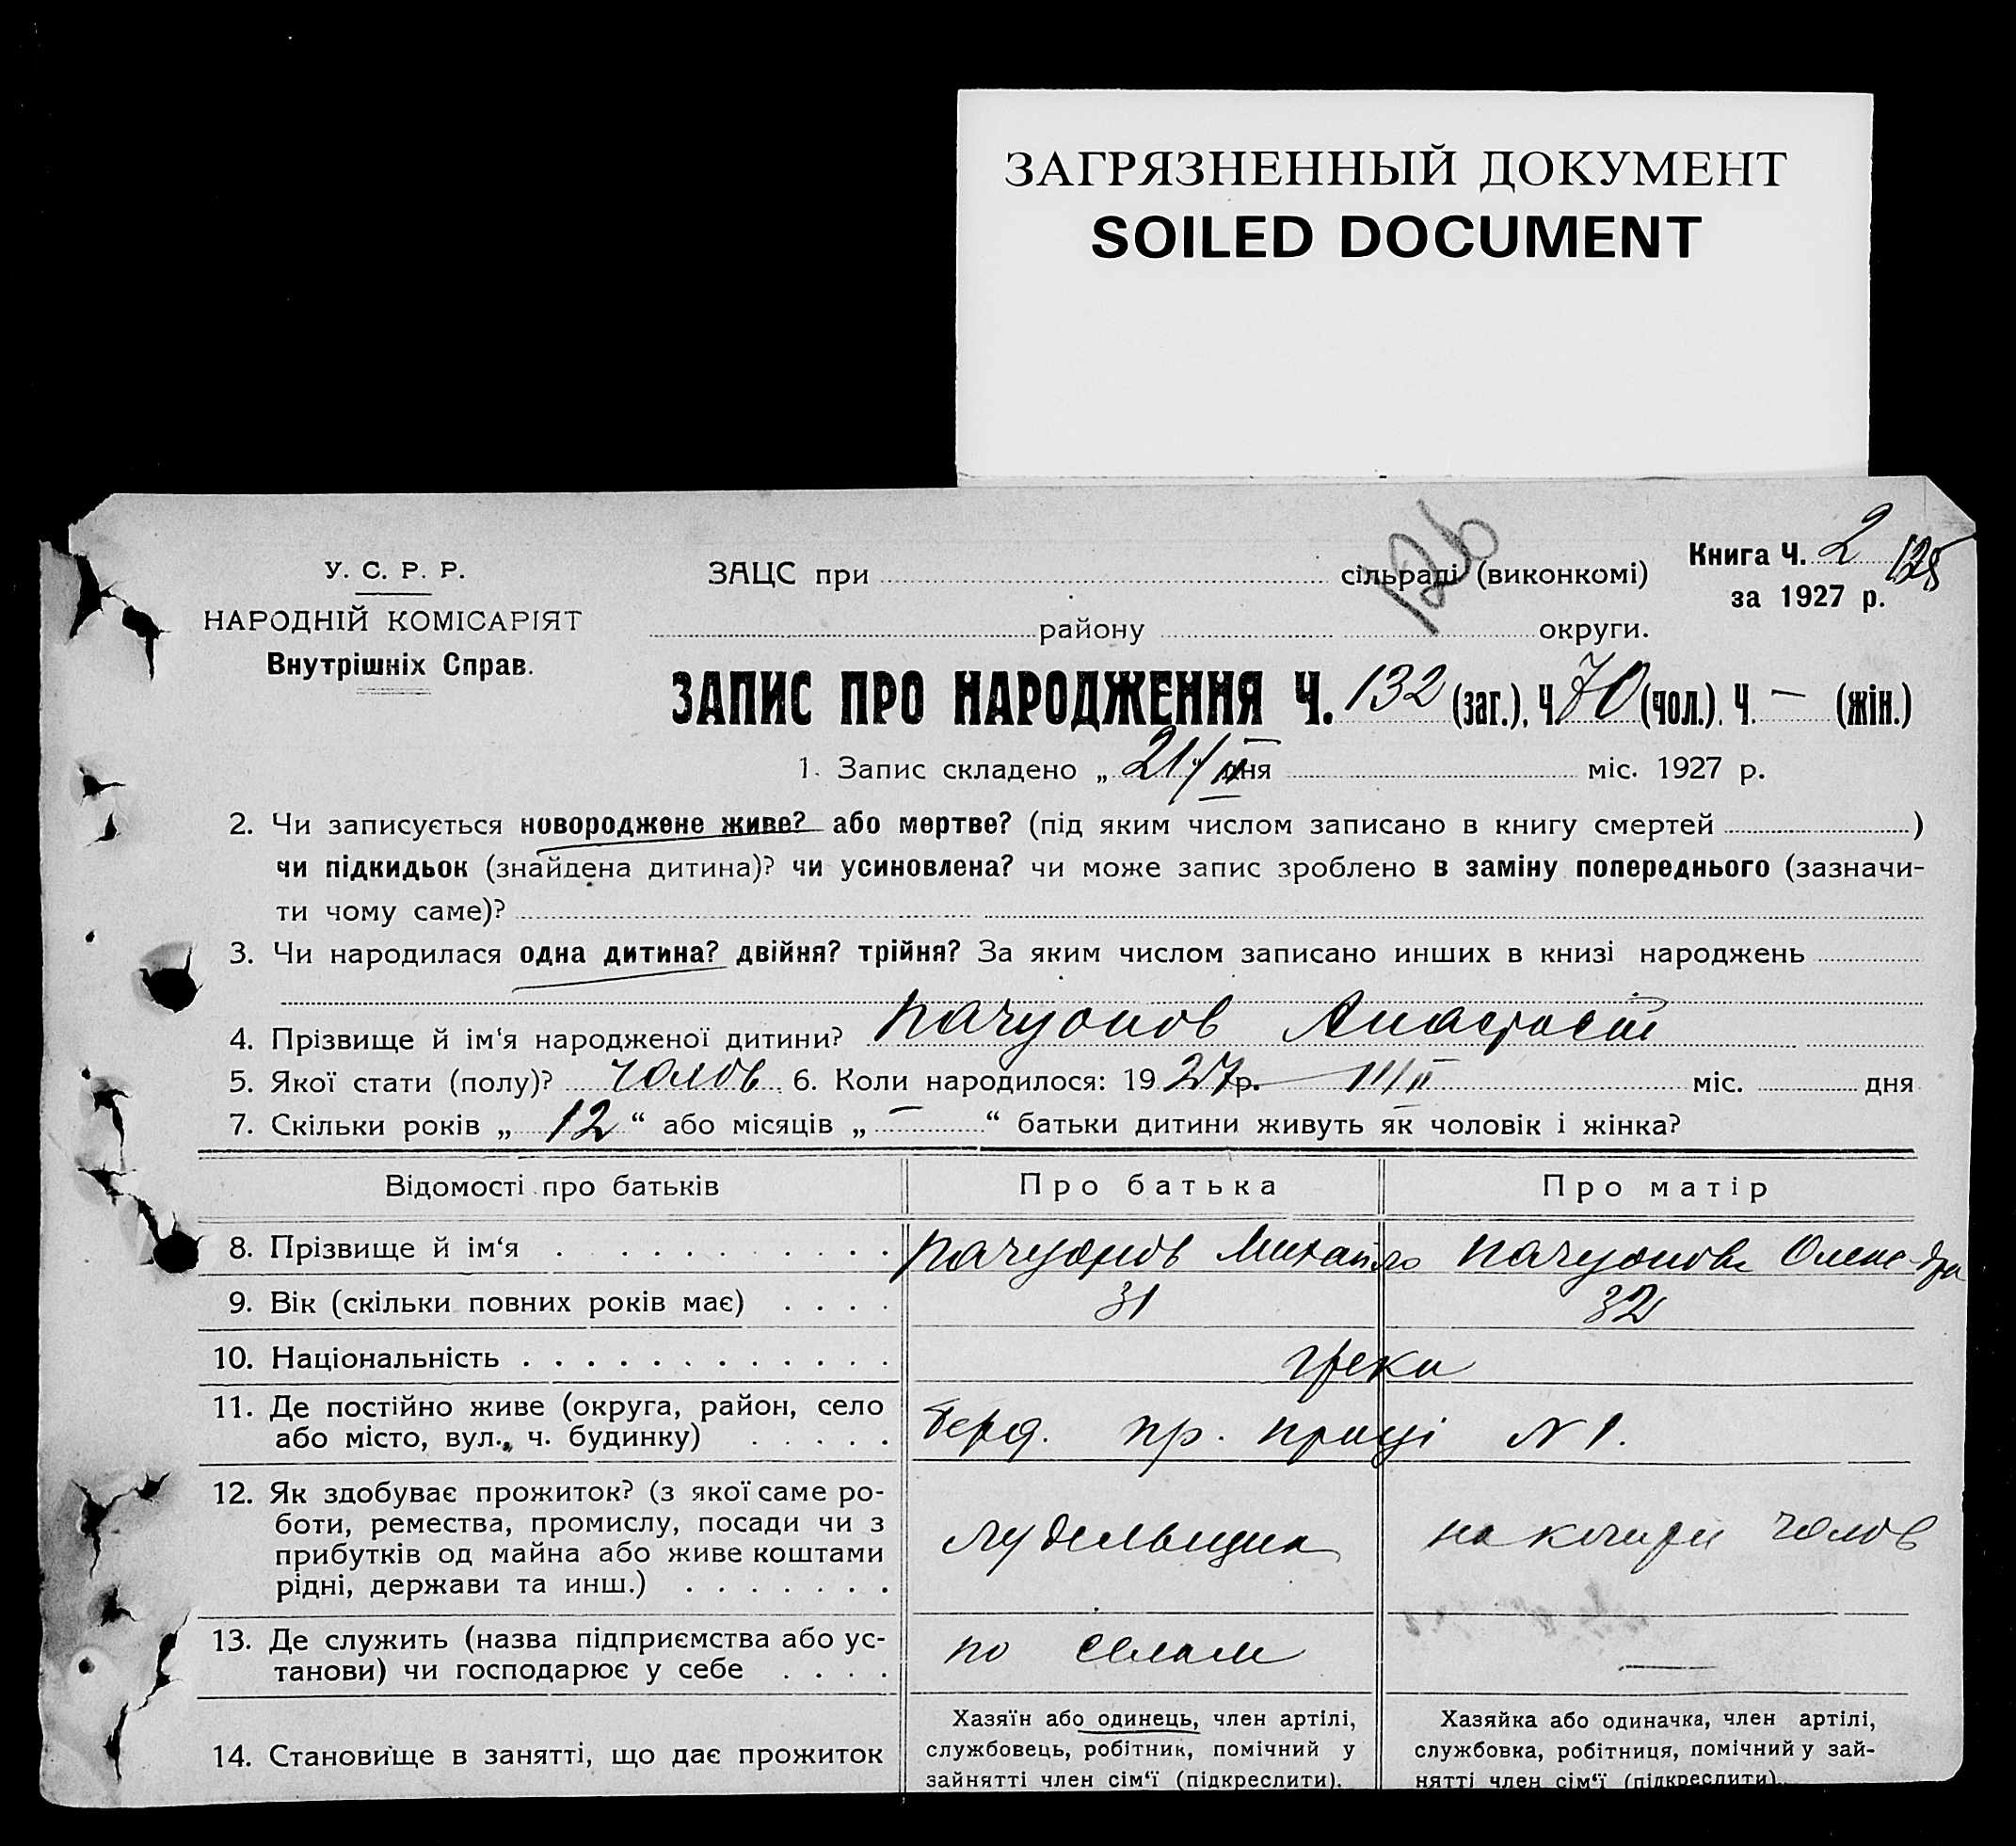 ЗАГРЯЗНЕННЫЙ ДОКУМЕНТ
SOILED DOCUMENT
126
Книга Ч. 2 125
за 1927 р.
У. С. Р. Р.
НАРОДНІЙ КОМІСАРІЯТ
Внутрішніх Справ.
ЗАЦС при сільраді (виконкомі)
району округи.
ЗАПИС ПРО НАРОДЖЕННЯ Ч. 132 (заг.), Ч. 70 (чол.). Ч. — (жін.)
1. Запис складено „ 21/II “ дня міс. 1927 р.
2. Чи записується новороджене живе? або мертве? (під яким числом записано в книгу смертей )
чи підкидьок (знайдена дитина)? чи усиновлена? чи може запис зроблено в заміну попереднього (зазначи-
ти чому саме)?
3. Чи народилася одна дитина? двійня? трійня? За яким числом записано инших в книзі народжень
4. Прізвище й ім‘я народженої дитини? Пачуонов
5. Якої стати (полу)? чолов. 6. Коли народилося: 1927 р. — міс. дня
7. Скільки років „ 12 “ або місяців „ — “ батьки дитини живуть як чоловік і жінка?
Відомості про батьків Про батька Про матір
8. Прізвище й ім‘я Пачуонов Михайло Пачуонова Олександра
9. Вік (скільки повних років має) 31 32
10. Національність греки
11. Де постійно живе (округа, район, село
або місто, вул., ч. будинку)
Берд. пр. праці N 1.
12. Як здобуває прожиток? (з якої саме ро-
боти, ремества, промислу, посади чи з
прибутків од майна або живе коштами
рідні, держави та инш.)
лудельщик на кошти чолов
13. Де служить (назва підприємства або ус-
танови) чи господарює у себе
по селам —
14. Становище в занятті, що дає прожиток
Хазяїн або одинець, член артілі,
службовець, робітник, помічний у
зайнятті член сім‘ї (підкреслити).
Хазяйка або одиначка, член артілі,
службовка, робітниця, помічний у зай-
нятті член сім‘ї (підкреслити).